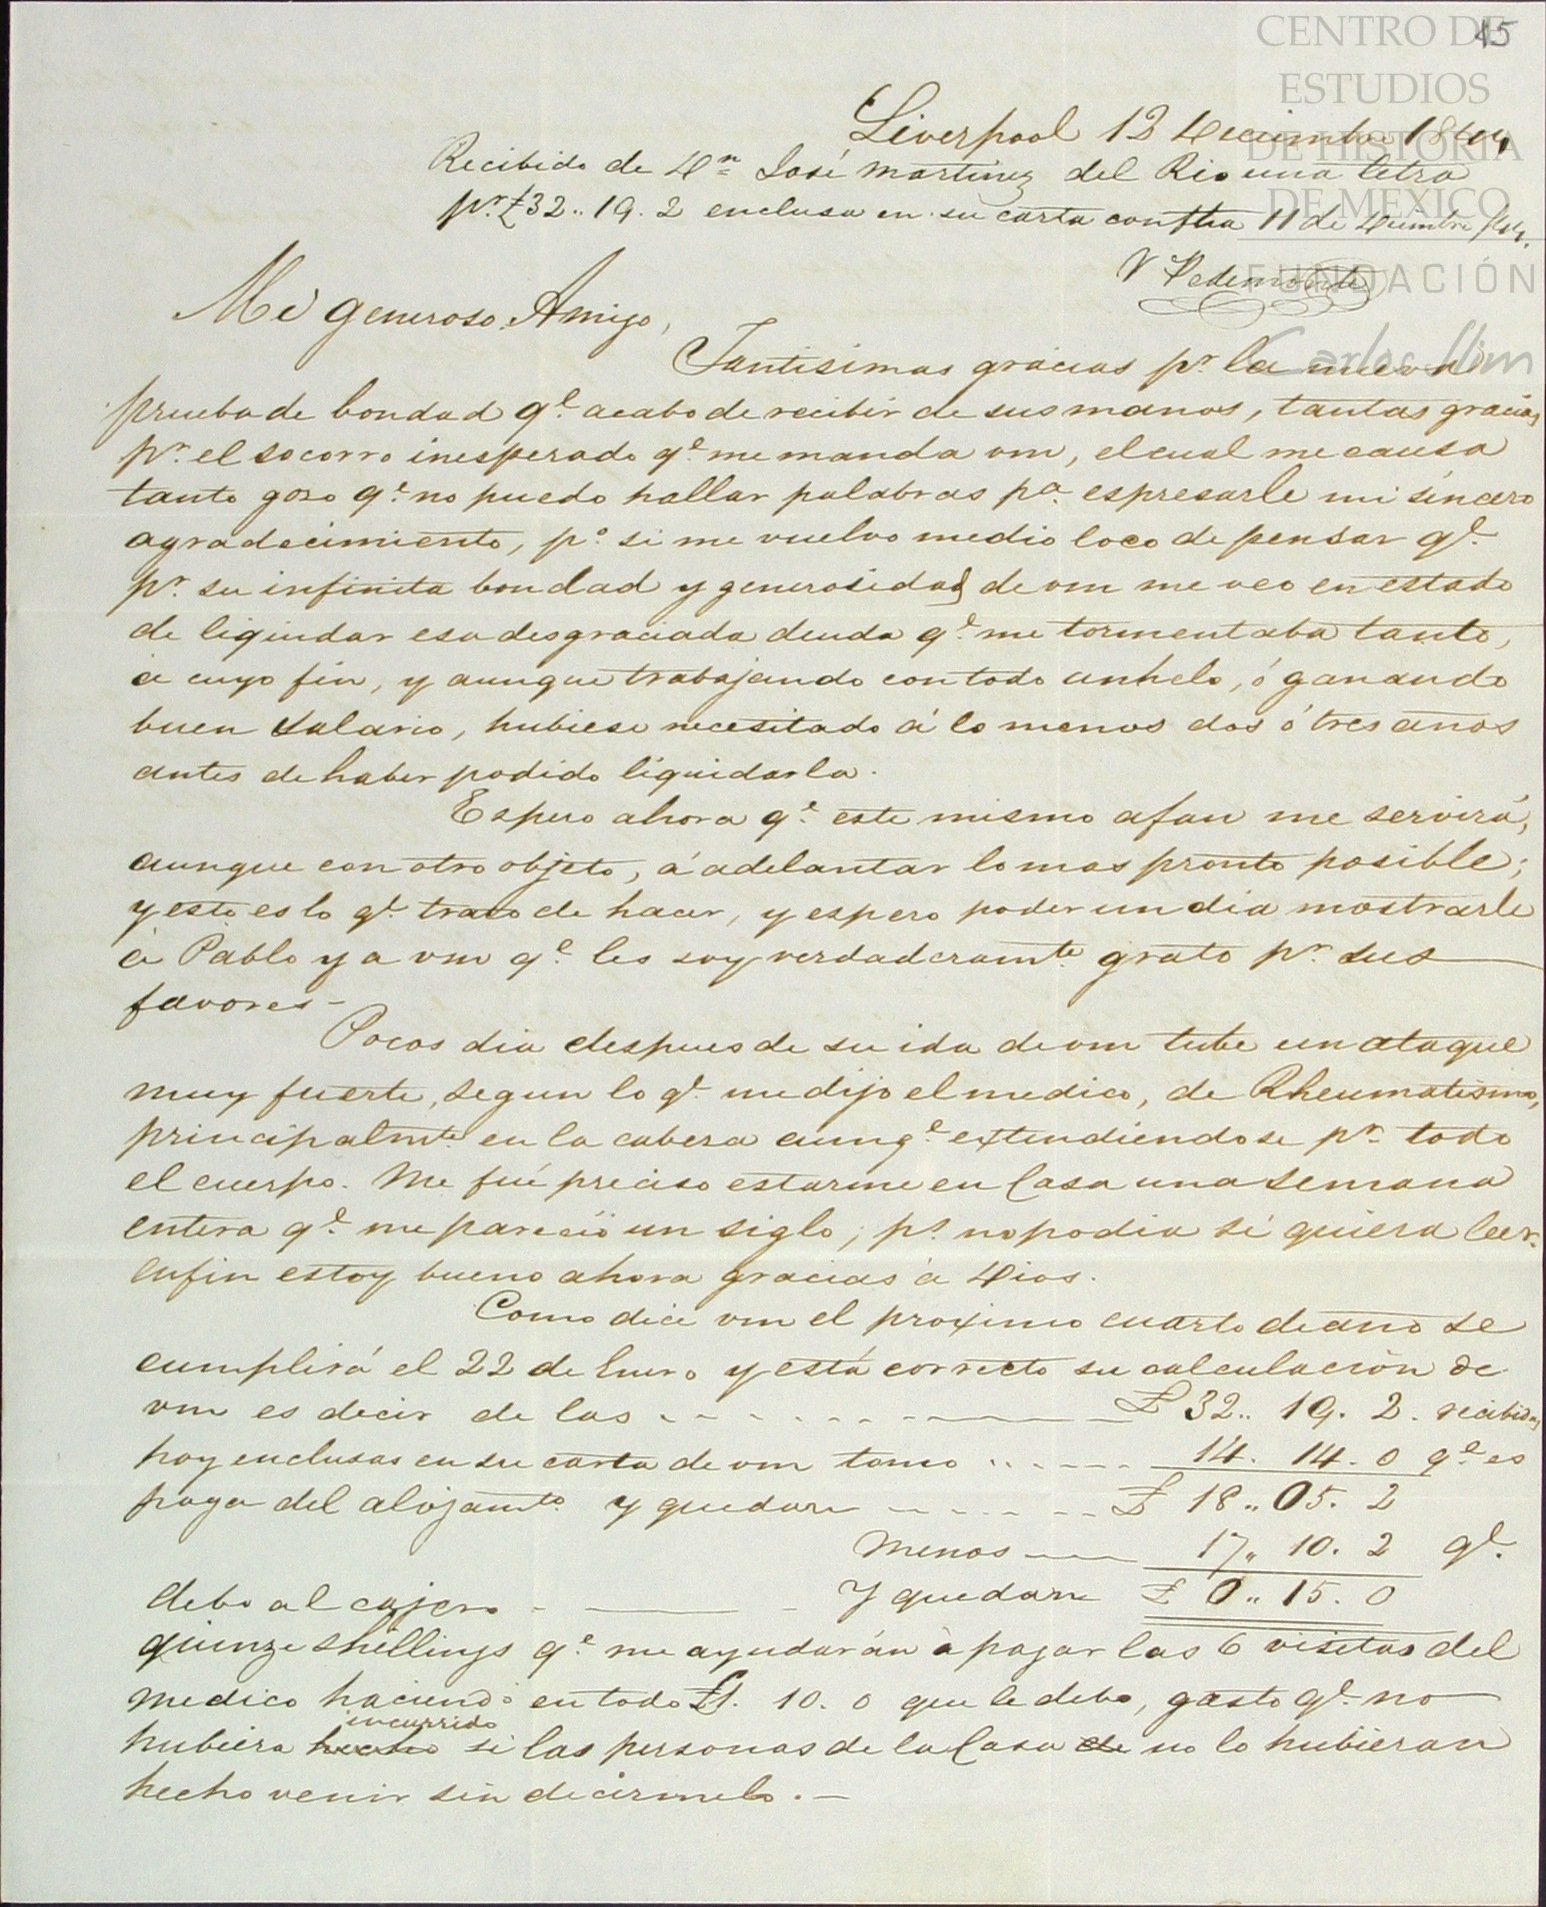 45
CENTRO DE
ESTUDIOS
DE HISTORIA
DE MEXICO
FUNDACIÓN
Carlos Slim
Liverpool 12 Deciembre 1844
Recibido de Dn José Martinez del Rio una letra
pr £32.. 19. 2 enclusa en su carta confha 11 de Diciembre /44.
V Pedemonte
Mi generoso Amigo,
Tantisimas gracias pr la nueva
prueba de bondad qe acabo de recibir de sus manos, tantas gracias
pr el socorro inesperado qe me manda vm, el cual me causa
tanto goso qe no puedo hallar palabras pa espresarle mi sincero
agradecimiento, ps si me vuelvo medio loco de pensar qe
pr su infinita bondad y generosidad de vm me veo en estado
de liqiudar esa desgraciada deuda qe me tormentaba tanto,
a cuyo fin, y aunque trabajando con todo anhelo, ó ganando
buen salario, hubiese necesitado á lo menos dos ó tres anos
antes de haber podido liquidarla.
Espero ahora qe este mismo afan me servirá,
aunque con otro objeto, á adelantar lo mas pronto posible;
y esto es lo qe trato de hacer, y espero poder un dia mostrarle
á Pablo y a vm qe les soy verdaderamte grato pr sus
favores -
Pocos dia despues de su ida de vm tube un ataque
muy fuerte, segun lo qe me dijo el medico, de Rheumatismo,
principalmte en la cabesa aunqe extendiendose pr todo
el cuerpo. Me fué preciso estarme en Casa una semana
entera qe me pareció un siglo, ps no podia si quiera leer.
Enfin estoy bueno ahora gracias á Dios.
Como dice vm el proximo cuarto de ano se
cumplirá el 22 de Enero y está correcto su calculación de
vm es decir de las - - - £ 32.. 19. 2. recibidas
hoy enclusas en su carta de vm tomo - - - 14. 14. 0 qe es
paga del alojamto y quedan - - - £ 18.. 05. 2
Menos — 17.. 10. 2 qe
debo al cajero - — - Y quedan £ 0.. 15. 0
quinze shillings qe me ayudarán á pagar las 6 visitas del
medico haciendo en todo £1. 10. 0 que le debo, gasto qe no
incurrido
hubiera hecho si las personas de la Casa de no lo hubieran
hecho venir sin decirmelo. —